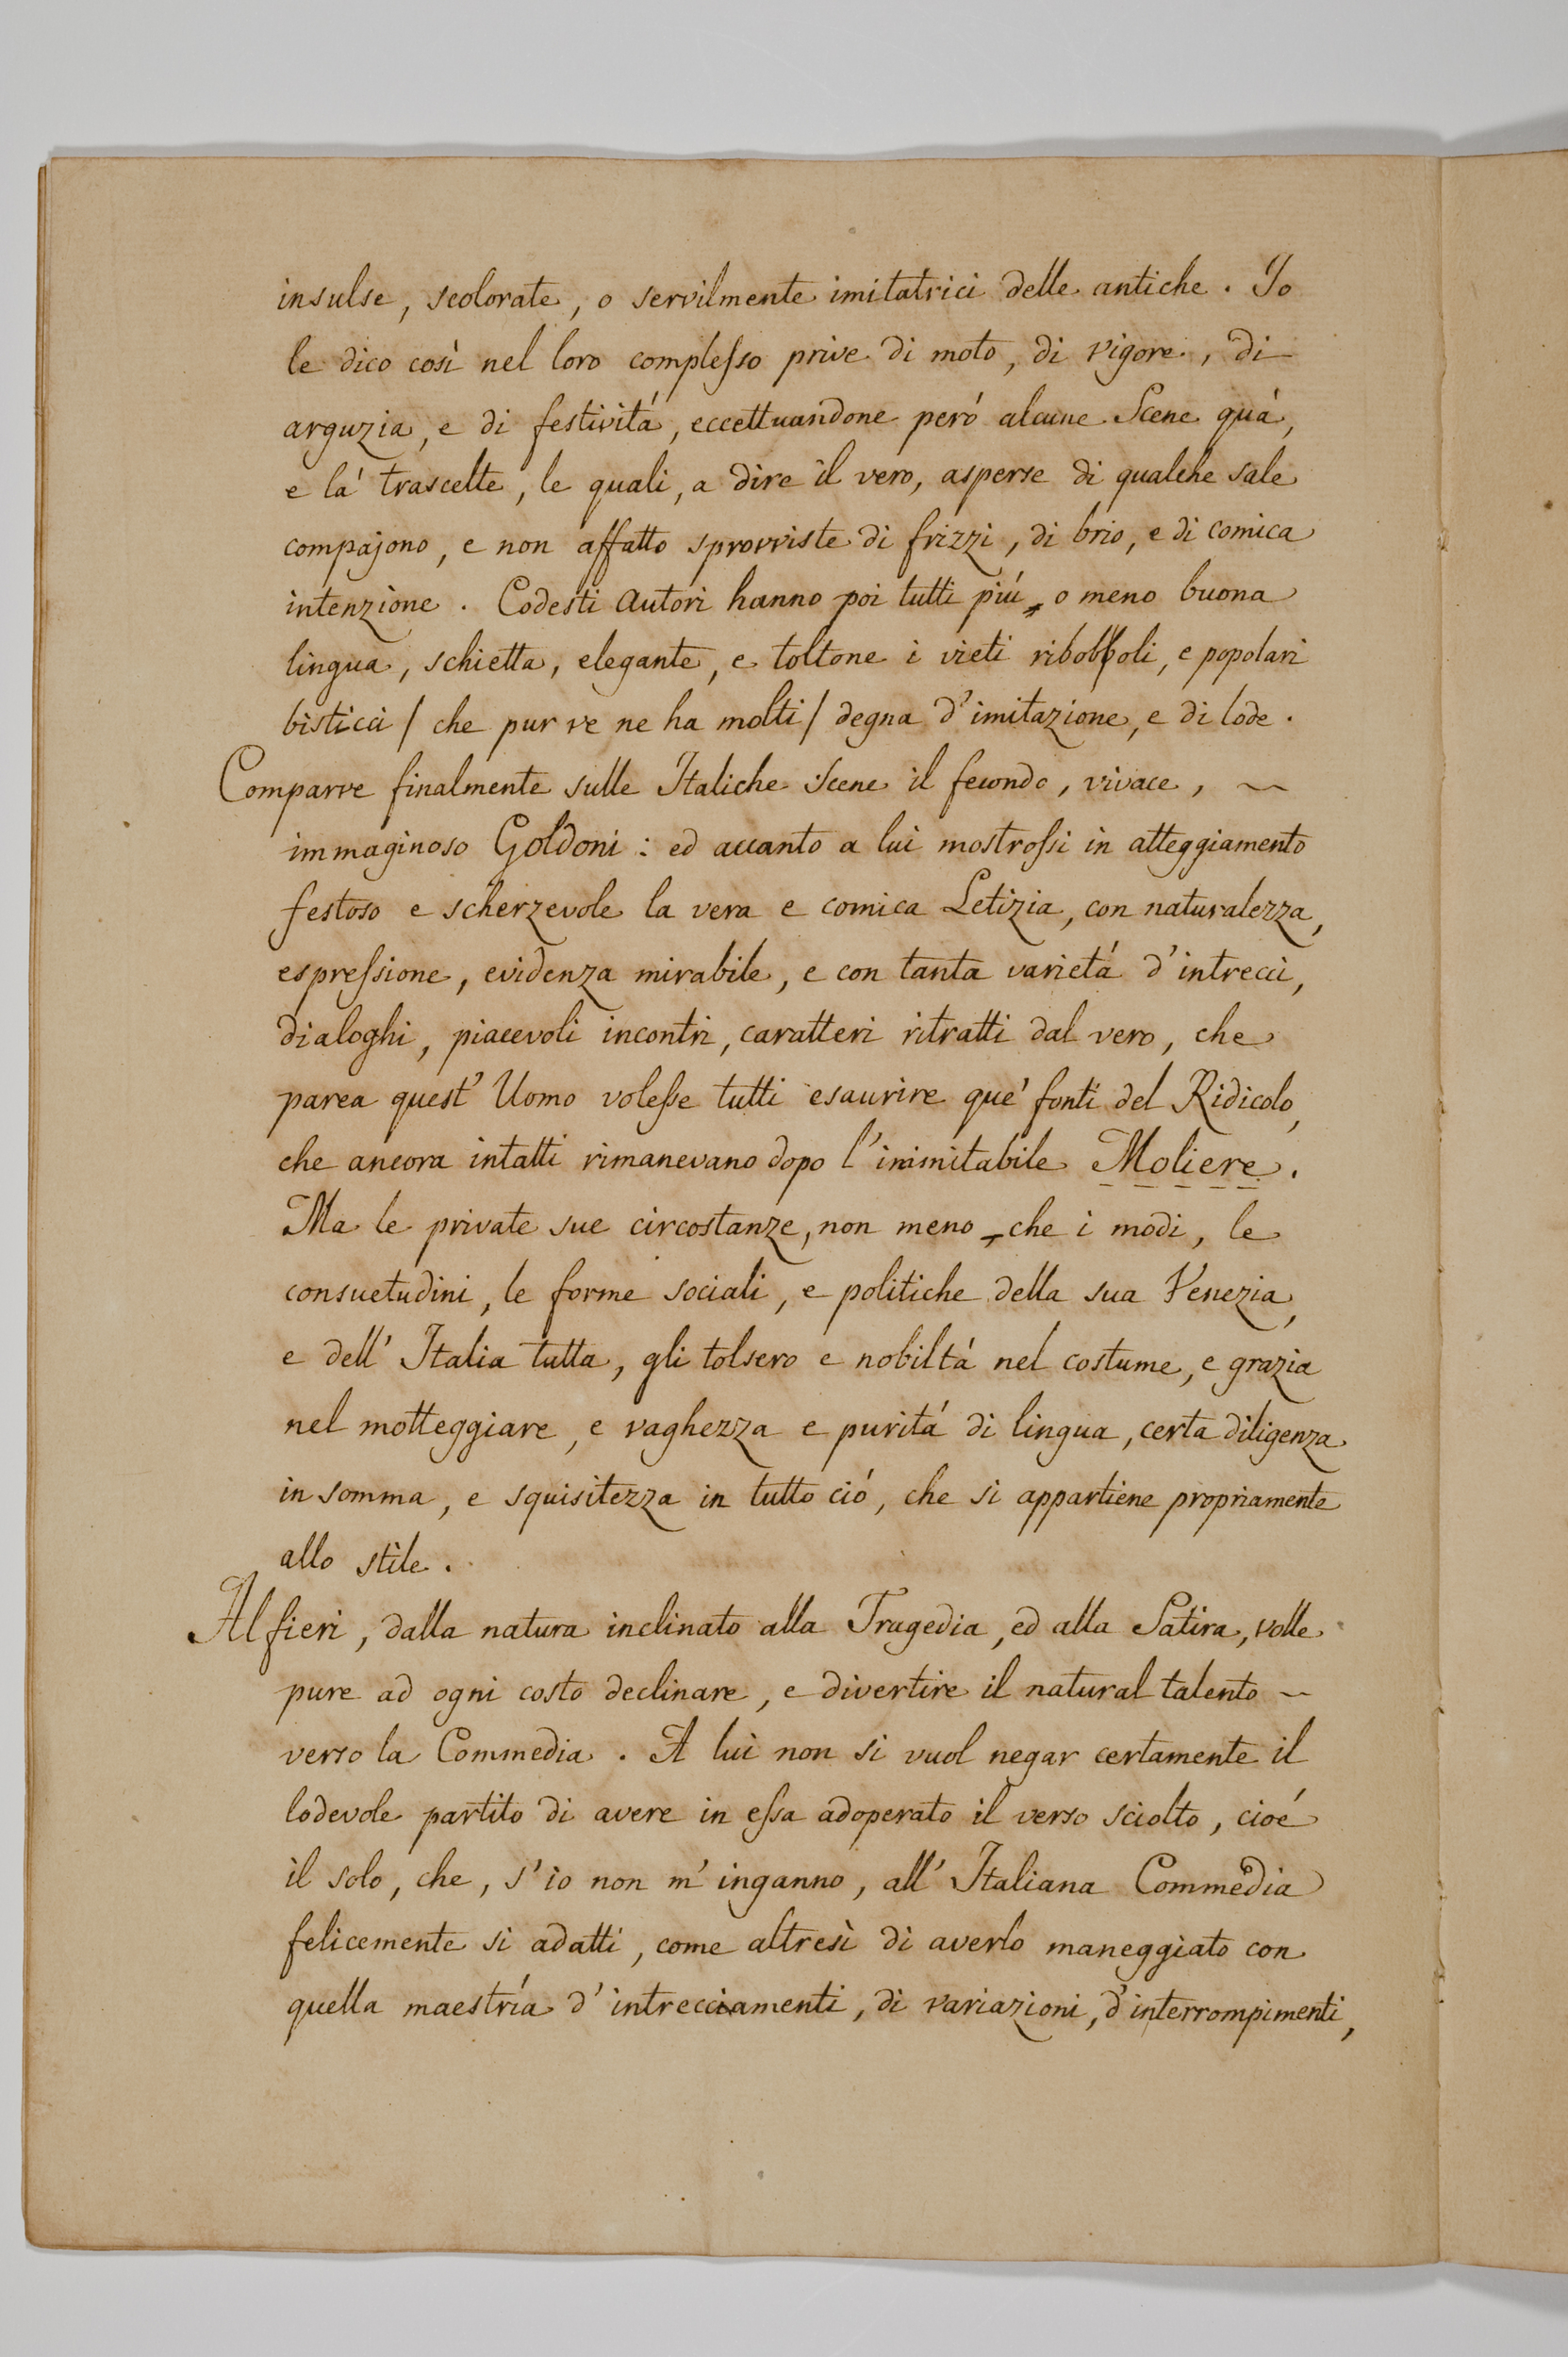 insulse, scolorate, o servilmente imitatrici delle antiche. Io
le dico così nel loro complesso prive di moto, di vigore, di
arguzia, e di festivitá, eccettuandone peró alcune Scene quá,
e lá trascelte, le quali, a dire il vero, asperse di qualche sale
compajono, e non affatto sprovviste di frizzi, di brio, e di comica
intenzione. Codesti Autori hanno poi tutti piú, o meno buona
lingua, schietta, elegante, e toltone i vieti riboboli, e popolari
bisticci / che pur ve ne ha molti / degna d'imitazione, e di lode.
Comparve finalmente sulle Italiche Scene il fecondo, vivace, ~
immaginoso Goldoni: ed accanto a lui mostrossi in atteggiamento
festoso e scherzevole la vera e comica Letizia, con naturalezza,
espressione, evidenza mirabile, e con tanta varietá d'intrecci,
dialoghi, piacevoli incontri, caratteri ritratti dal vero, che
parea quest'Uomo volesse tutti esaurire que' fonti del Ridicolo,
che ancora intatti rimanevano dopo l'inimitabile Moliere.
Ma le private sue circostanze, non meno, che i modi, le
consuetudini, le forme sociali, e politiche della sua Venezia,
e dell'Italia tutta, gli tolsero e nobiltá nel costume, e grazia
nel motteggiare, e vaghezza e puritá di lingua, certa diligenza
in somma, e squisitezza in tutto ció, che si appartiene propriamente
allo stile.
Alfieri, dalla natura inclinato alla Tragedia, ed alla Satira, volle
pure ad ogni costo declinare, e divertire il natural talento ~
verso la Commedia. A lui non si vuol negar certamente il
lodevole partito di avere in essa adoperato il verso sciolto, cioé
il solo, che, s'io non m'inganno, all'Italiana Commedia
felicemente si adatti, come altresì di averlo maneggiato con
quella maestría d'intrecciamenti, di variazioni, d'interrompimenti,